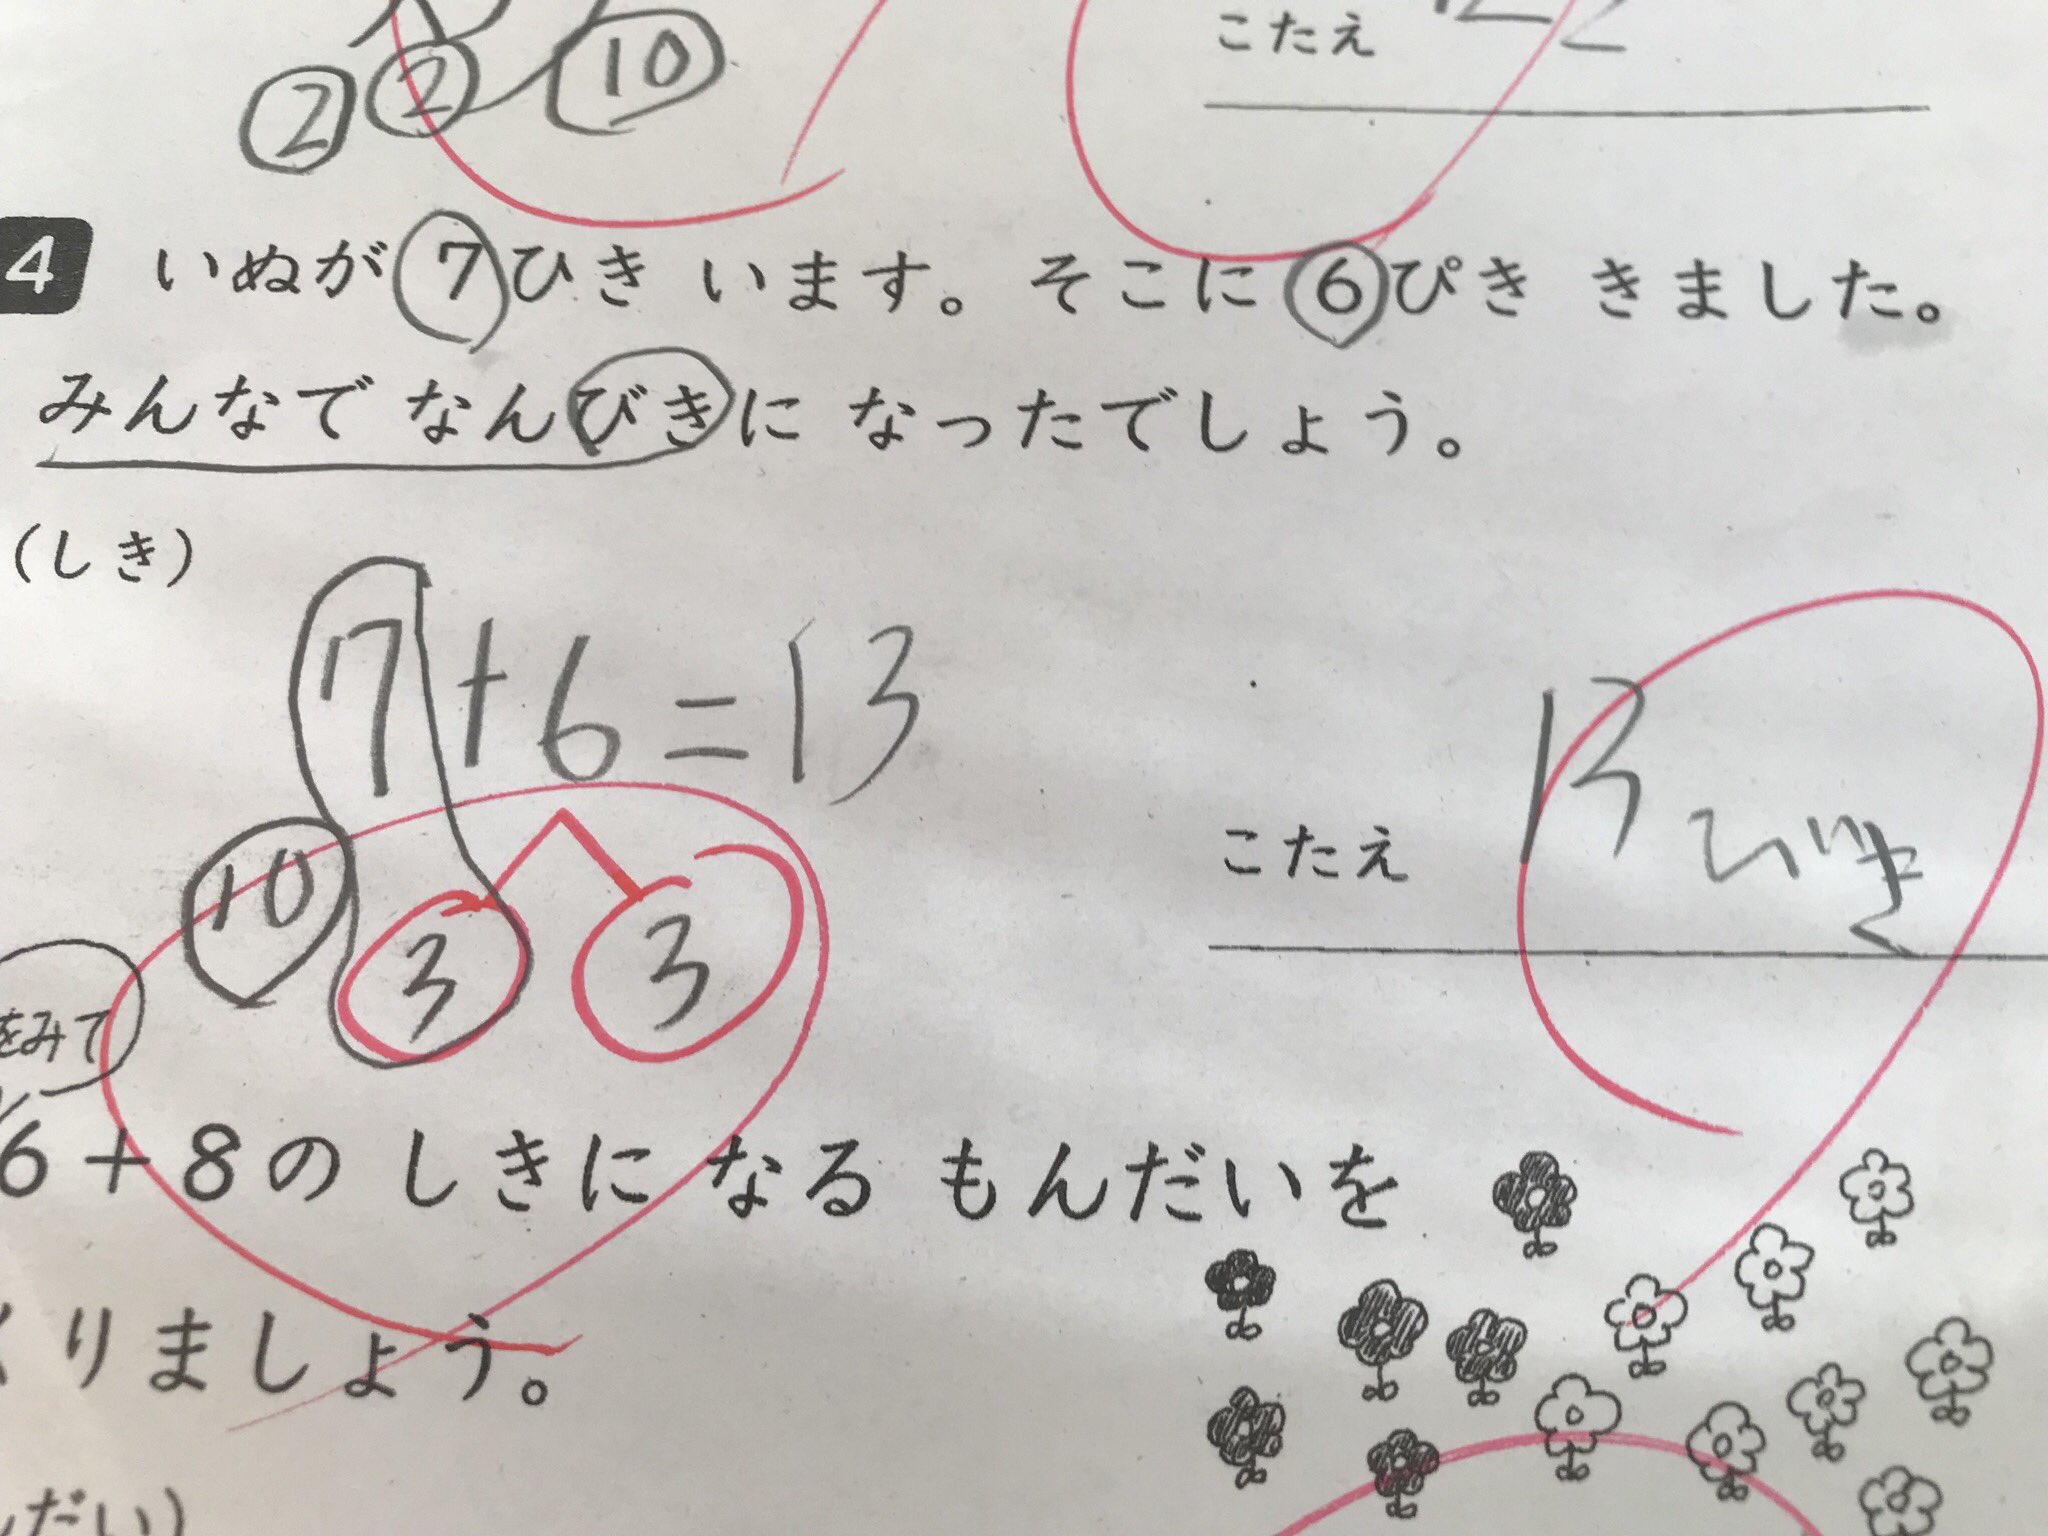 ② ② ⑩
こたえ
4 いぬが 7 ひき います。 そこに 6 ぴき きました。
みんなで なんびきに なったでしょう。
(しき)
7+6=13
10 3 3
こたえ 13 びき
をみて
6+8の しきに なる もんだいを
くりましょう。
んだい)